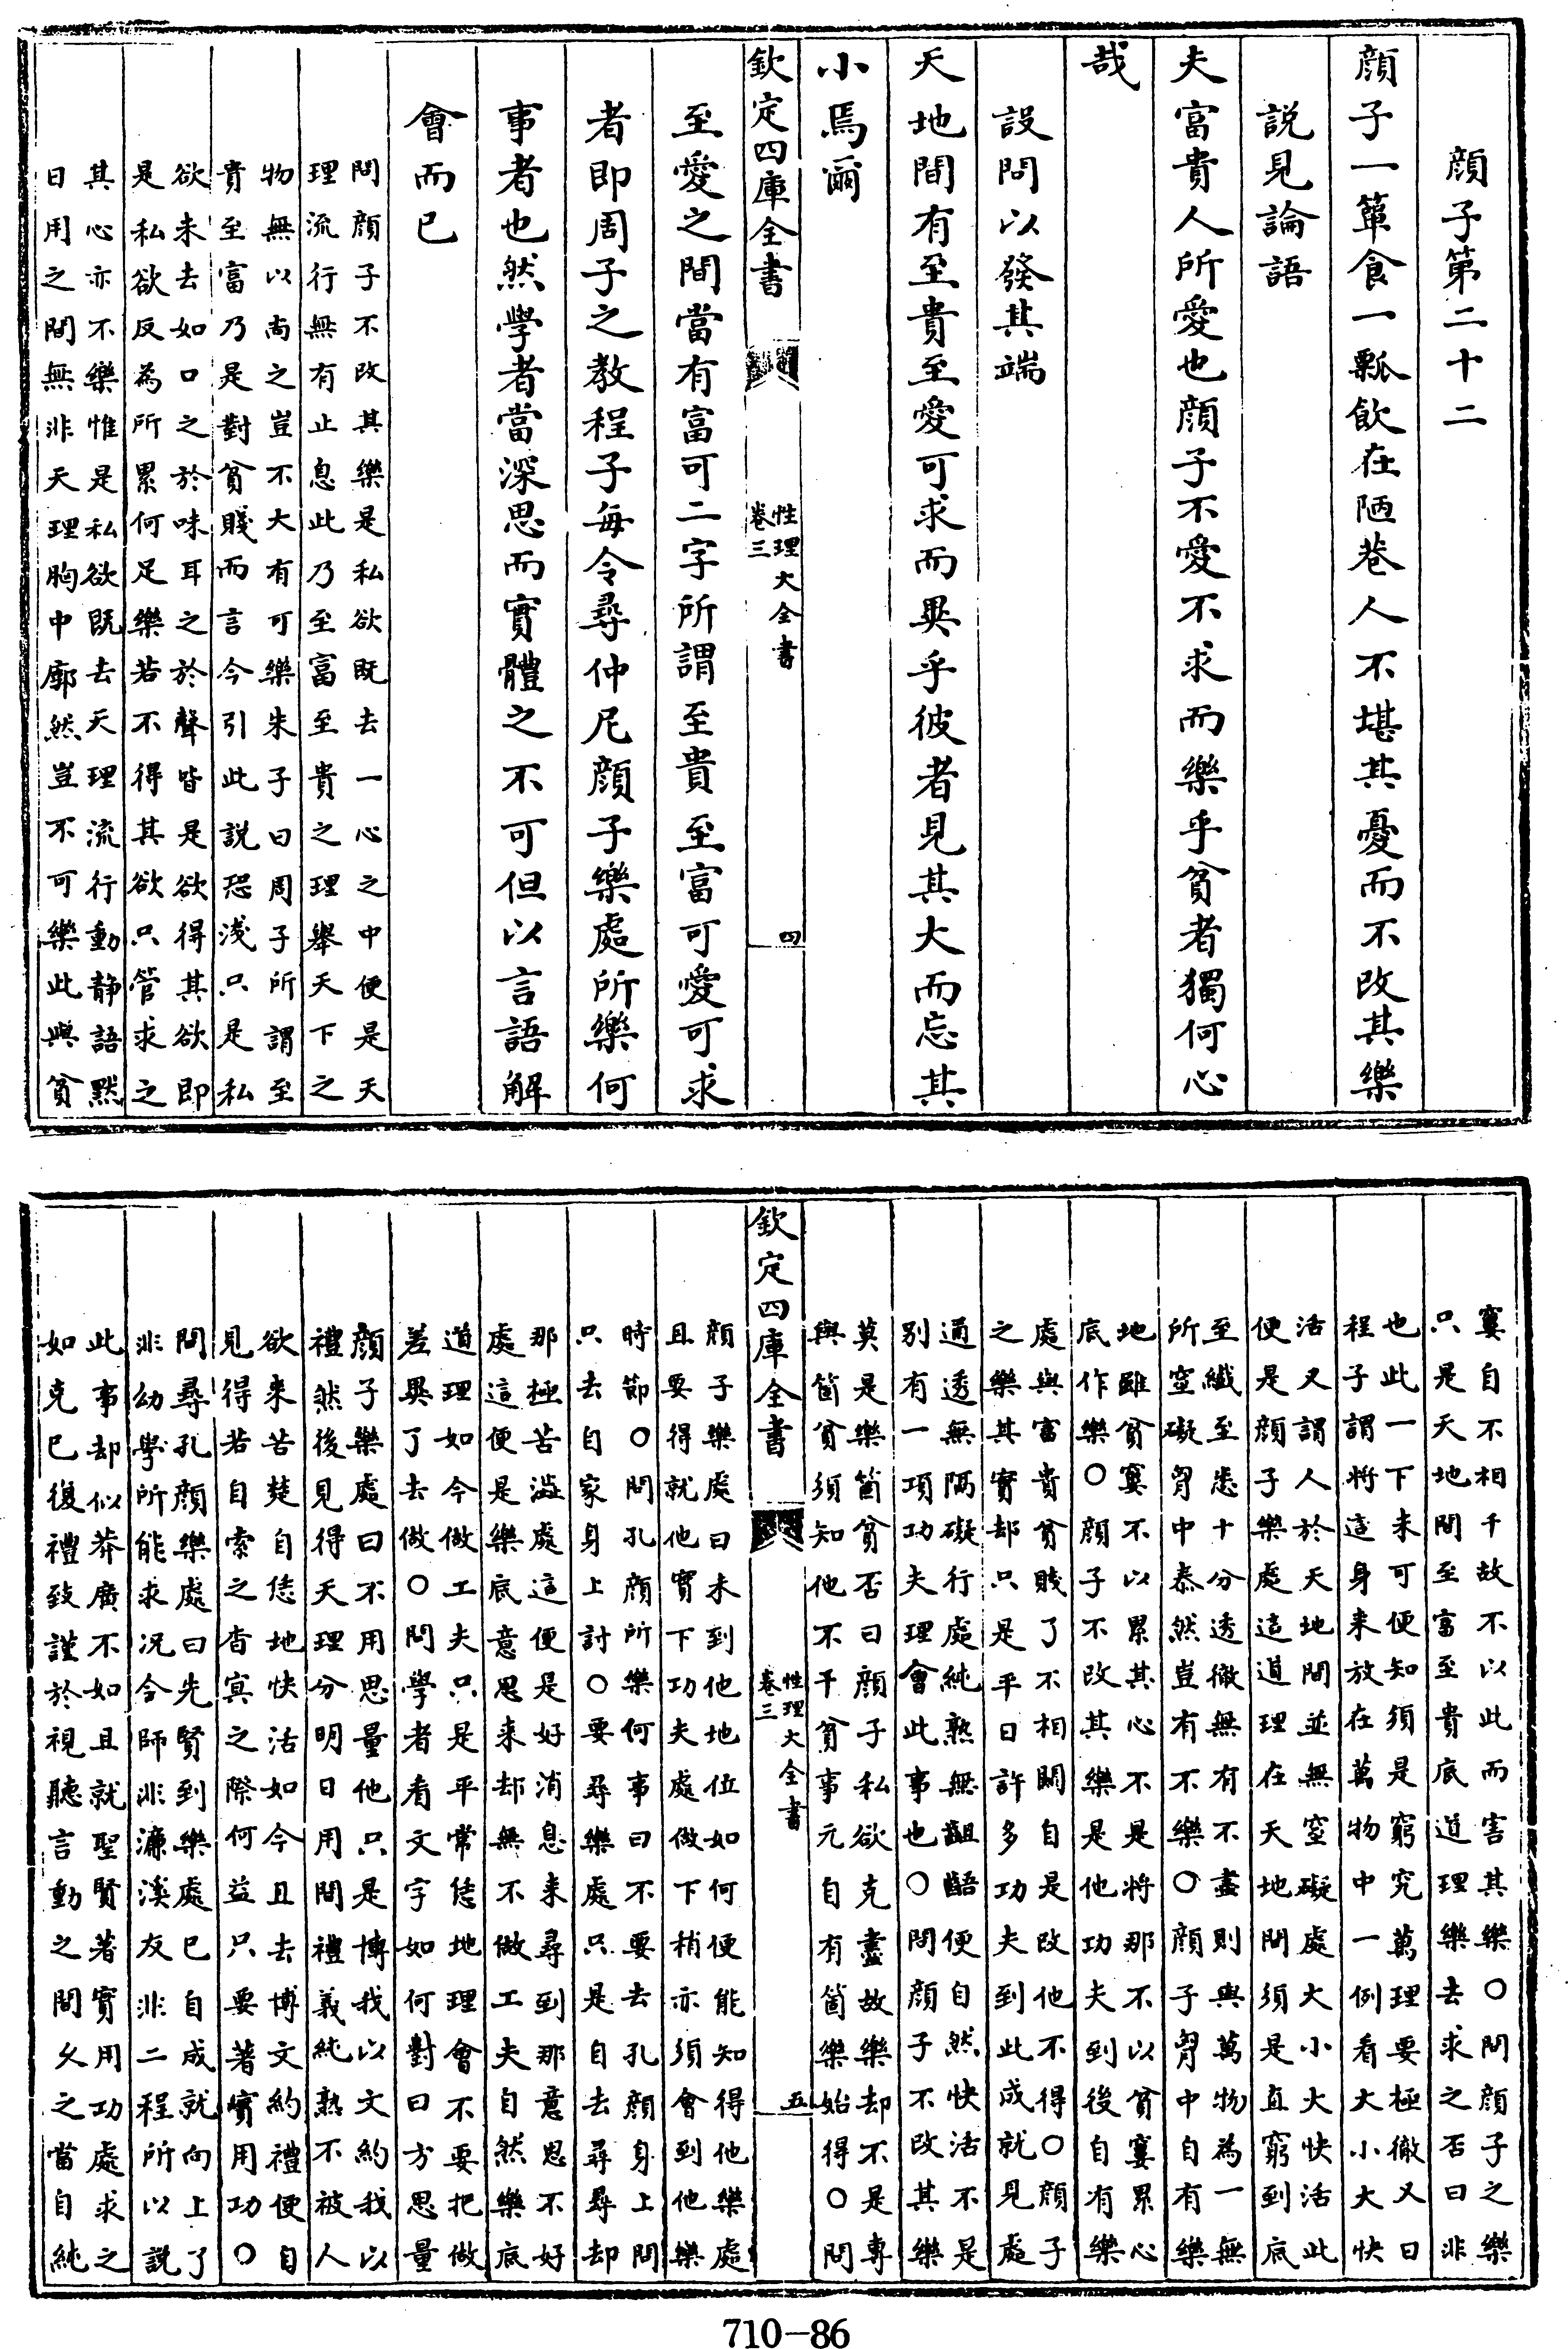 顔子第二十二
顔子一簞食一瓢飲在陋巷人不堪其憂而不改其樂
説見論語
夫富貴人所愛也顔子不愛不求而樂乎貧者獨何心
哉
設問以發其端
天地間有至貴至愛可求而異乎彼者見其大而忘其
小焉爾
欽定四庫全書
性理大全書
卷三
四
至愛之間當有富可二字所謂至貴至富可愛可求
者即周子之教程子每令尋仲尼顔子樂處所樂何
事者也然學者當深思而實體之不可但以言語解
會而已
問顔子不改其樂是私欲既去一心之中便是天
理流行無有止息此乃至富至貴之理舉天下之
物無以尚之豈不大有可樂朱子曰周子所謂至
貴至富乃是對貧賤而言今引此説恐淺只是私
欲未去如口之於味耳之於聲皆是欲得其欲即
是私欲反為所累何足樂若不得其欲只管求之
其心亦不樂惟是私欲既去天理流行動静語黙
日用之間無非天理胸中廓然豈不可樂此與貧
窶自不相干故不以此而害其樂○問顔子之樂
只是天地間至富至貴底道理樂去求之否曰非
也此一下未可便知須是窮究萬理要極徹又曰
程子謂將這身来放在萬物中一例看大小大快
活又謂人於天地間並無窒礙處大小大快活此
便是顔子樂處這道理在天地間須是直窮到底
至纎至悉十分透徹無有不盡則與萬物為一無
所窒礙胷中泰然豈有不樂○顔子胷中自有樂
地雖貧窶不以累其心不是將那不以貧窶累心
底作樂○顔子不改其樂是他功夫到後自有樂
處與富貴貧賤了不相闗自是改他不得○顔子
之樂其實却只是平日許多功夫到此成就見處
通透無隔礙行處純熟無齟齬便自然快活不是
別有一項功夫理會此事也○問顔子不改其樂
莫是樂箇貧否曰顔子私欲克盡故樂却不是專
與箇貧須知他不干貧事元自有箇樂始得○問
欽定四庫全書
性理大全書
卷三
五
顔子樂處曰未到他地位如何便能知得他樂處
且要得就他實下功夫處做下稍亦須會到他樂
時節○問孔顔所樂何事曰不要去孔顔身上問
只去自家身上討○要尋樂處只是自去尋尋却
那極苦澁處這便是好消息来尋到那意思不好
處這便是樂底意思来却無不做工夫自然樂底
道理如今做工夫只是平常恁地理會不要把做
差異了去做○問學者看文字如何對曰方思量
顔子樂處曰不用思量他只是博我以文約我以
禮然後見得天理分明日用間禮義純熟不被人
欲来苦楚自恁地快活如今且去博文約禮便自
見得若自索之杳冥之際何益只要著實用功○
問尋孔顔樂處曰先賢到樂處已自成就向上了
非幼學所能求况今師非濓溪友非二程所以説
此事却似莽廣不如且就聖賢著實用功處求之
如克已復禮致謹於視聽言動之間乆之當自純
710-86